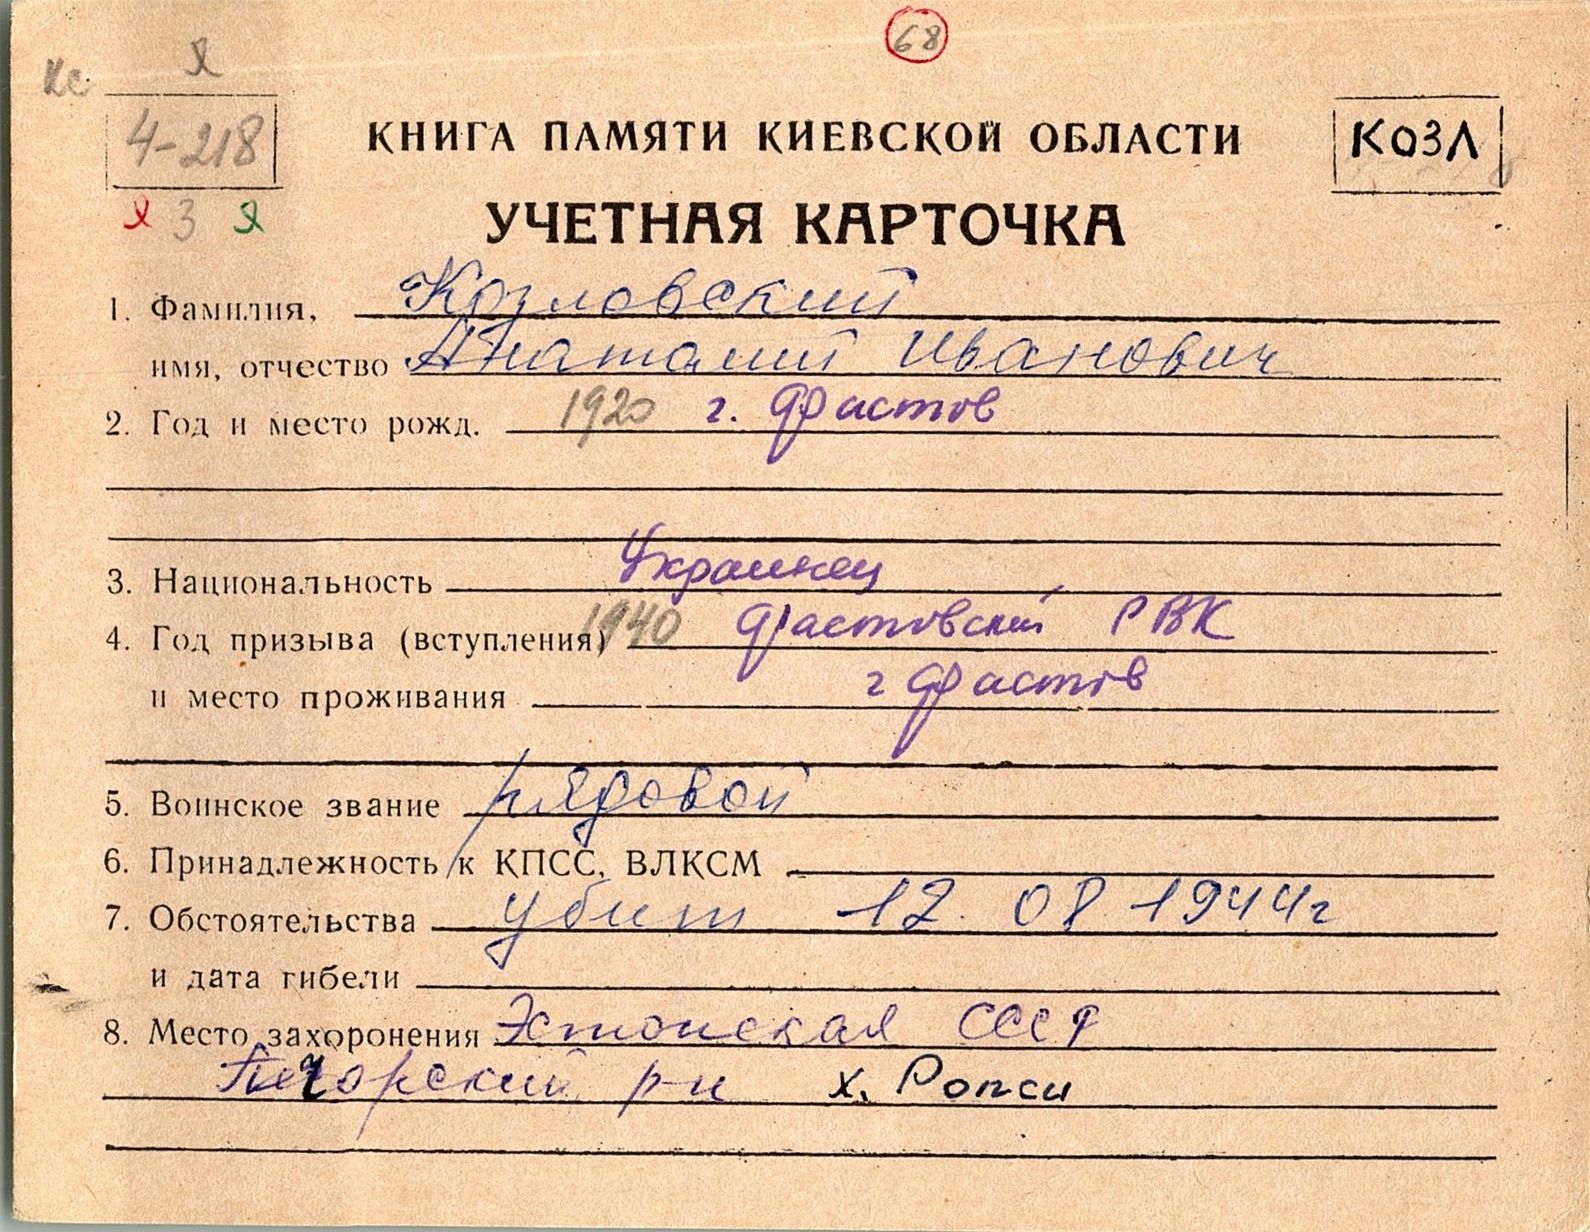 68
Кс Я
4-218
КНИГА ПАМЯТИ КИЕВСКОЙ ОБЛАСТИ
КОЗЛ
Я 3 Я
УЧЕТНАЯ КАРТОЧКА
1. Фамилия, Козловский
имя, отчество Анатолий Иванович
2. Год и место рожд. 1920 г. Фастов
3. Национальность Украинец
4. Год призыва (вступления) 1940 Фастовский РВК
и место проживания г Фастов
5. Воинское звание рядовой
6. Принадлежность к КПСС, ВЛКСМ
7. Обстоятельства убит 12. 08 1944г
и дата гибели
8. Место захоронения Эстонская ССР
Печорский р-н х. Ропси